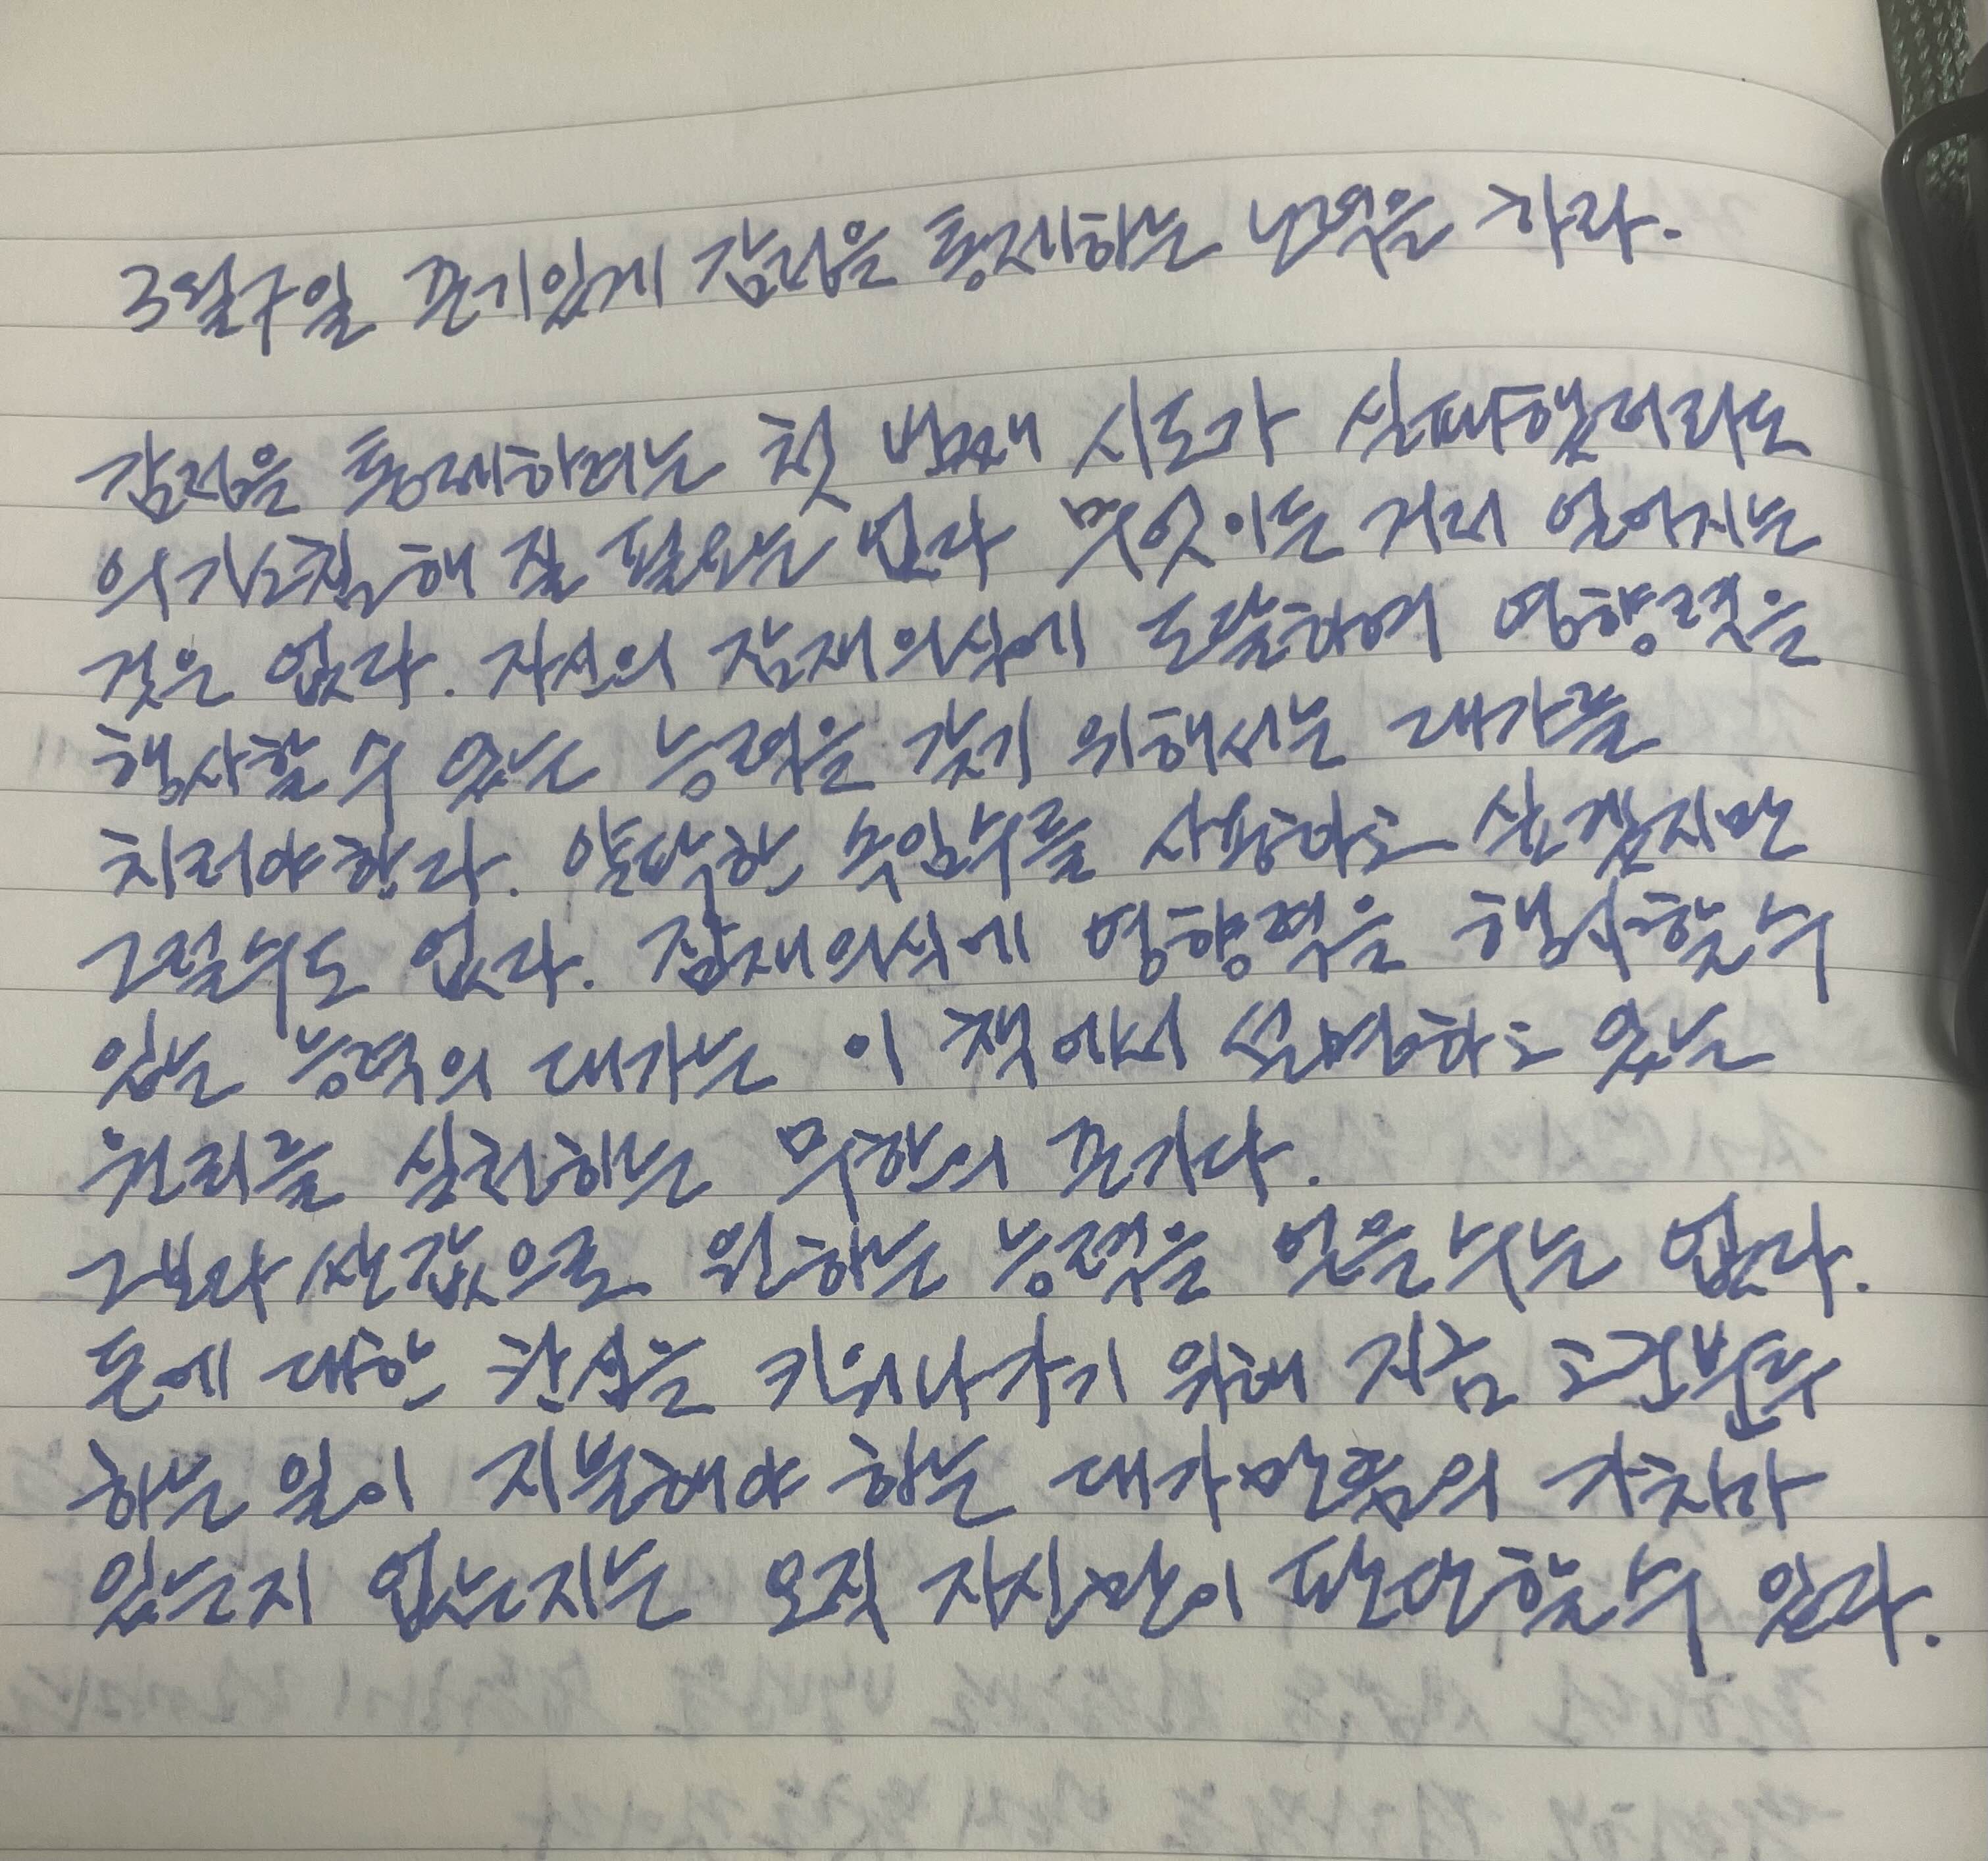 3월9일 끈기있게 감정을 통제하는 노력을 하라.
감정을 통제하려는 첫 번째 시도가 실패했더라도
의기소침해 질 필요는 없다 무엇이든 거저 얻어지는
것은 없다. 자신의 잠재의식에 도달하여 영향력을
행사할 수 있는 능력을 갖기 위해서는 대가를
치러야한다. 얄팍한 속임수를 사용하고 싶겠지만
그럴수도 없다. 잠재의식에 영향력을 행사할수
있는 능력의 대가는 이 책에서 설명하고 있는
원리를 실천하는 무한의 끈기다.
그보다 싼값으로 원하는 능력을 얻을수는 없다.
돈에 대한 관심을 키워나가기 위해 지금 고군분투
하는 일이 지불해야 하는 대가만큼의 가치가
있는지 없는지는 오직 자신만이 판단할수 있다.